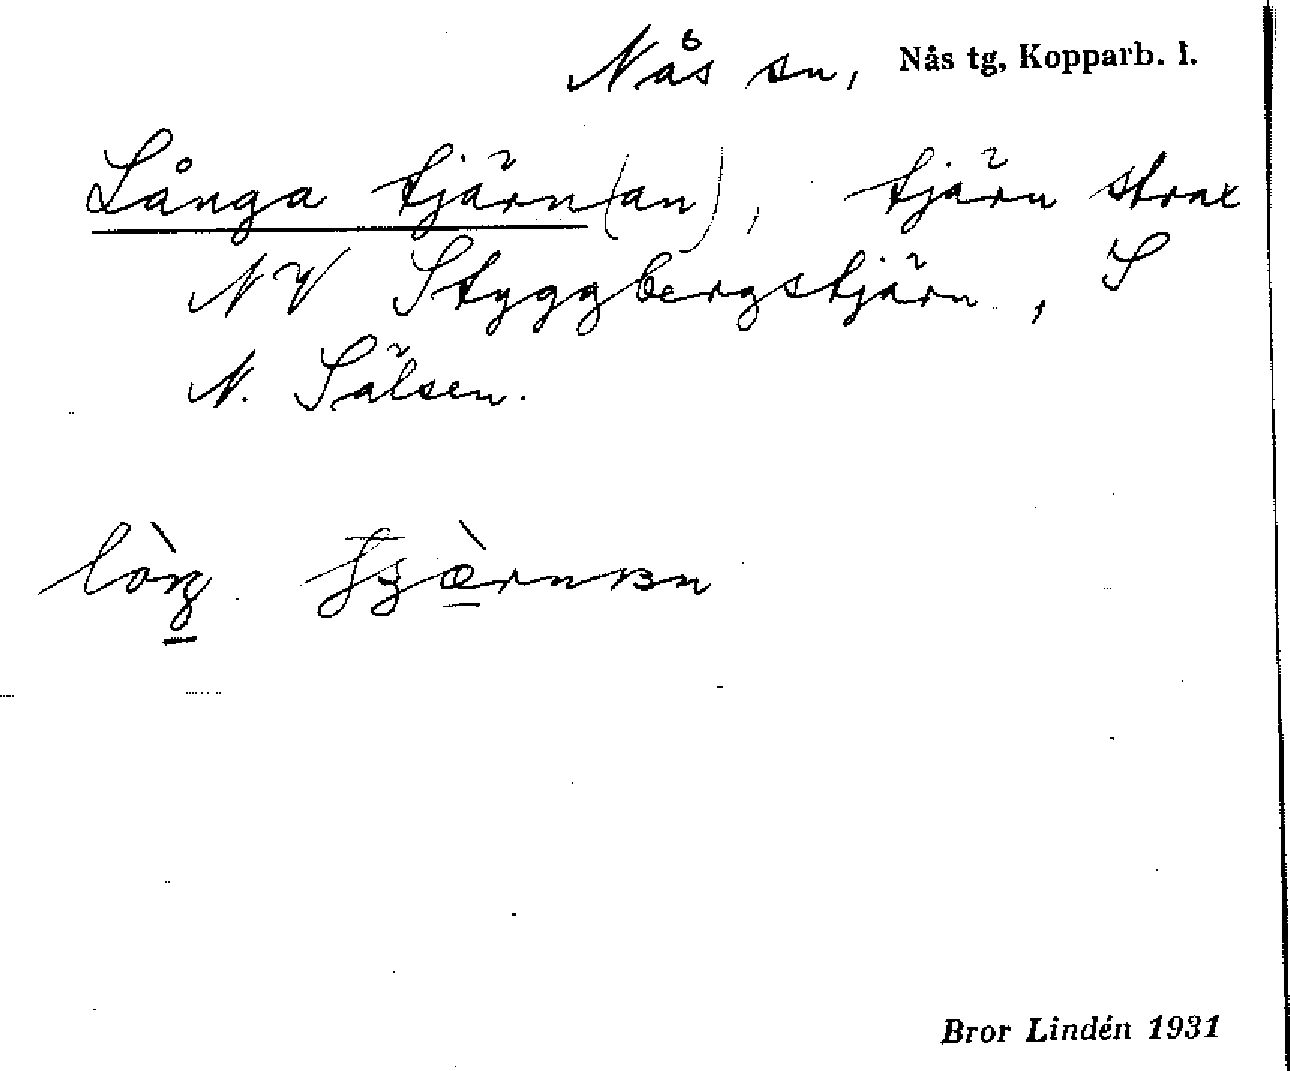 Nås sn, Nås tg, Kopparb. l.
Långa tjärn(an), tjärn strax
NV Styggbergstjärn, S
N. Sälsen.
lòŋ
Bror Lindén 1931